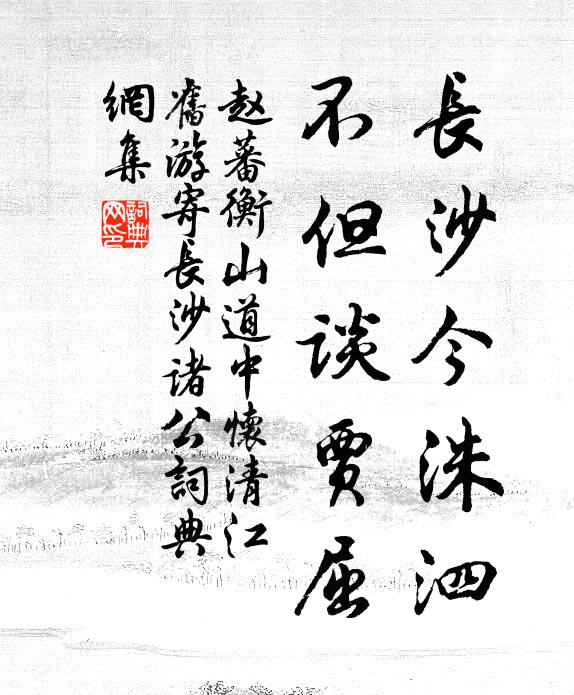 長沙今洙泗
不但談賈屈
赵蕃衡山道中懷清江
舊游寄長沙诸公詞典
網集
詞典
网印